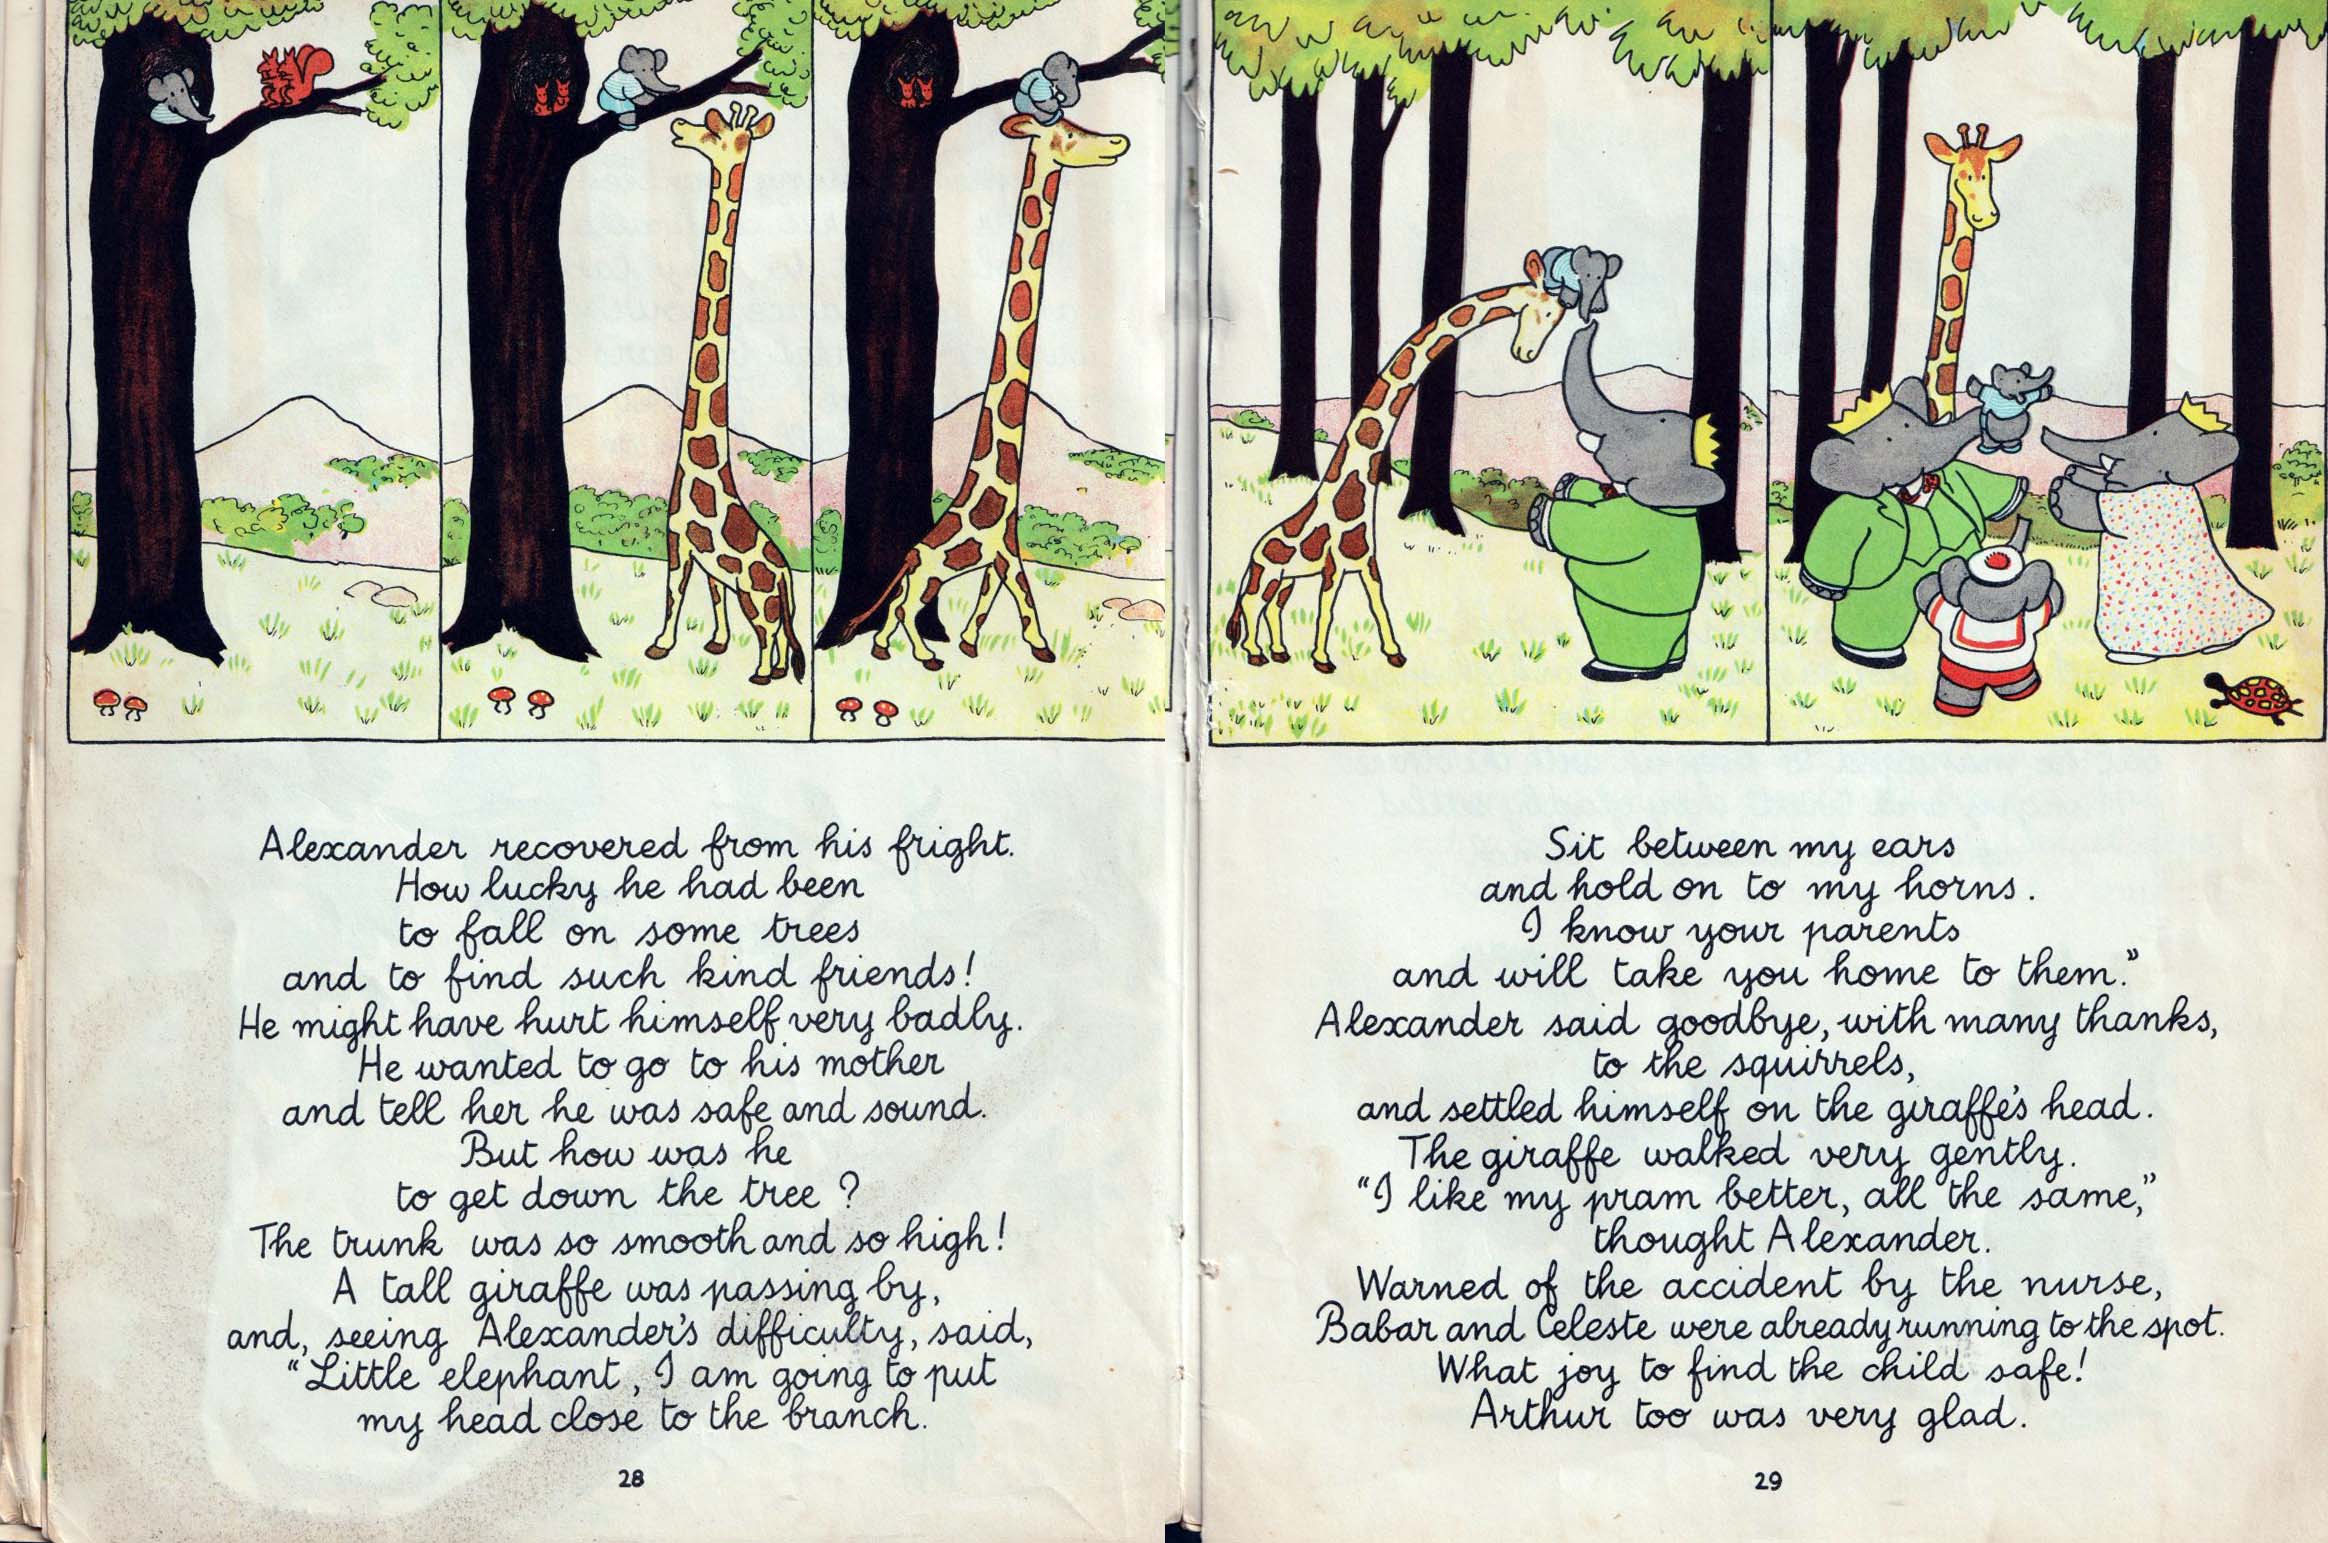 Alexander recovered from his fright.
How lucky he had been
to fall on some trees
and to find such kind friends!
He might have hurt himself very badly.
He wanted to go to his mother
and tell her he was safe and sound.
But how was he
to get down the tree ?
The trunk was so smooth and so high!
A tall giraffe was passing by,
and, seeing Alexander's difficulty, said,
"Little elephant, I am going to put
my head close to the branch.
28
Sit between my ears
and hold on to my horns.
I know your parents
and will take you home to them."
Alexander said goodbye, with many thanks,
to the squirrels,
and settled himself on the giraffe's head.
The giraffe walked very gently.
"I like my pram better, all the same,"
thought Alexander.
Warned of the accident by the nurse,
Babar and Celeste were already running to the spot.
What joy to find the child safe!
Arthur too was very glad.
29